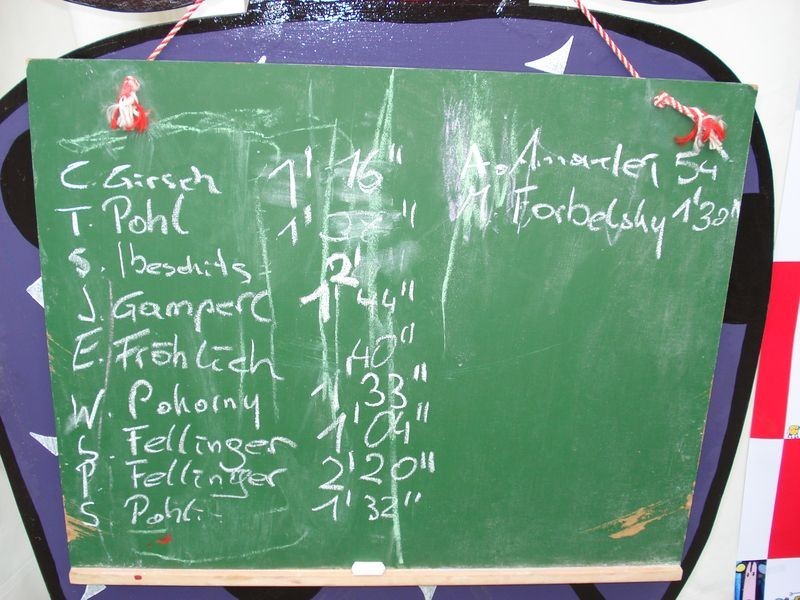 C. Girsch 1' 16"
T. Pohl 1' "
S. Ibeschits 2'
J. Gamperl 1' 44"
E. Fröhlich 40"
W. Pokorny 1' 33"
S. Fellinger 1' 04"
P. Fellinger 2' 20"
S Pohl. 1' 32"
A. 54
Forbelsky 1'30"